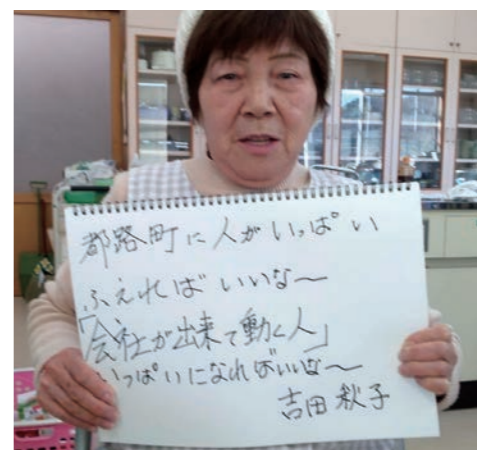 都路町に人がいっぱい
ふえればいいな〜
「会社が出来て動く人」
いっぱいになればいいな〜
吉田秋子